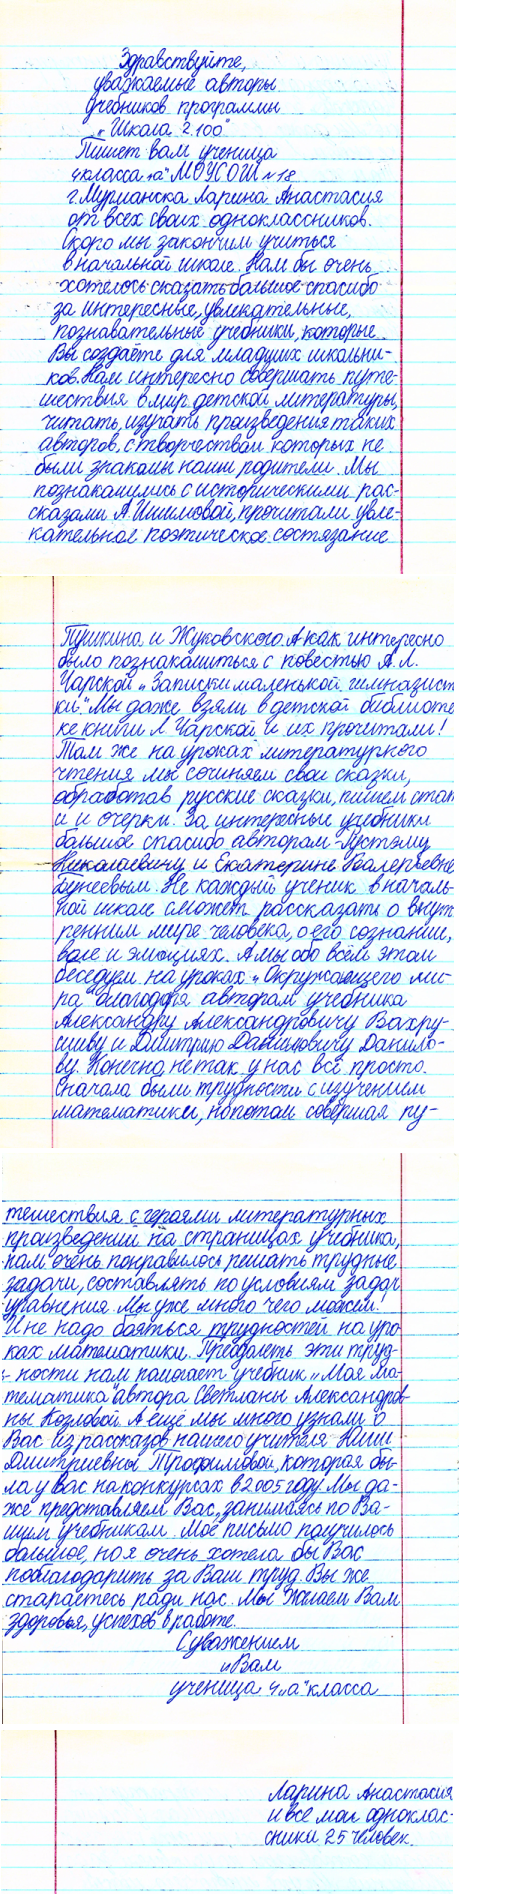 Здравствуйте,
уважаемые авторы
учебников программы
„Школа 2100"
Пишет вам ученица
4 класса „а" МОУСОШ №18
г. Мурманска Ларина Анастасия
от всех своих одноклассников.
Скоро мы закончим учиться
в начальной школе. Нам бы очень
хотелось сказать большое спасибо
за интересные, увлекательные,
познавательные учебники, которые
Вы создаёте для младших школьни-
ков. Нам интересно совершать путе-
шествия в мир детской литературы,
читать, изучать произведения таких
авторов, с творчеством которых не
были знакомы наши родители. Мы
познакомились с историческими рас-
сказами А. Ишимовой, прочитали увле-
кательное поэтическое состязание
Пушкина и Жуковского. А как интересно
было познакомиться с повестью А. Л.
Чарской „Записки маленькой гимназист
ки." Мы даже взяли в детской библиоте
ке книги Л. Чарской и их прочитали!
Там же на уроках литературного
чтения мы сочиняем свои сказки,
обработав русские сказки, пишем стат
и и очерки. За интересные учебники
большое спасибо авторам - Рустэму
Николаевичу и Екатерине Валерьевне
Бунеевым. Не каждый ученик в началь-
ной школе сможет рассказать о внут
реннем мире человека, о его сознании,
воле и эмоциях. А мы обо всём этом
беседуем на уроках „Окружающего ми-
ра" благодаря авторам учебника
Александру Александровичу Вахру-
шеву и Дмитрию Даниловичу Данило-
ву. Конечно, не так у нас всё просто.
Сначала были трудности с изучением
математики, но потом совершая пу-
тешествия с героями литературных
произведений на страницах учебника,
нам очень понравилось решать трудные
задачи, составлять по условиям задач
уравнения. Мы уже много чего можем!
И не надо бояться трудностей на уро
ках математики. Преодолеть эти труд-
ности нам помогает учебник „Моя ма-
тематика" автора Светланы Александров
ны Козловой. А ещё мы много узнали о
Вас из рассказов нашего учителя Юлии
Дмитриевны Трофимовой, которая бы-
ла у Вас на конкурсах в 2005 году. Мы да-
же представляем Вас, занимаясь по Ва-
шим учебникам. Моё письмо получилось
большое, но я очень хотела бы Вас
поблагодарить за Ваш труд. Вы же
стараетесь ради нас. Мы желаем Вам
здоровья, успехов в работе.
С уважением
к Вам
ученица 4 „а" класса
Ларина Анастасия
и все мои одноклас-
сники 25 человек.